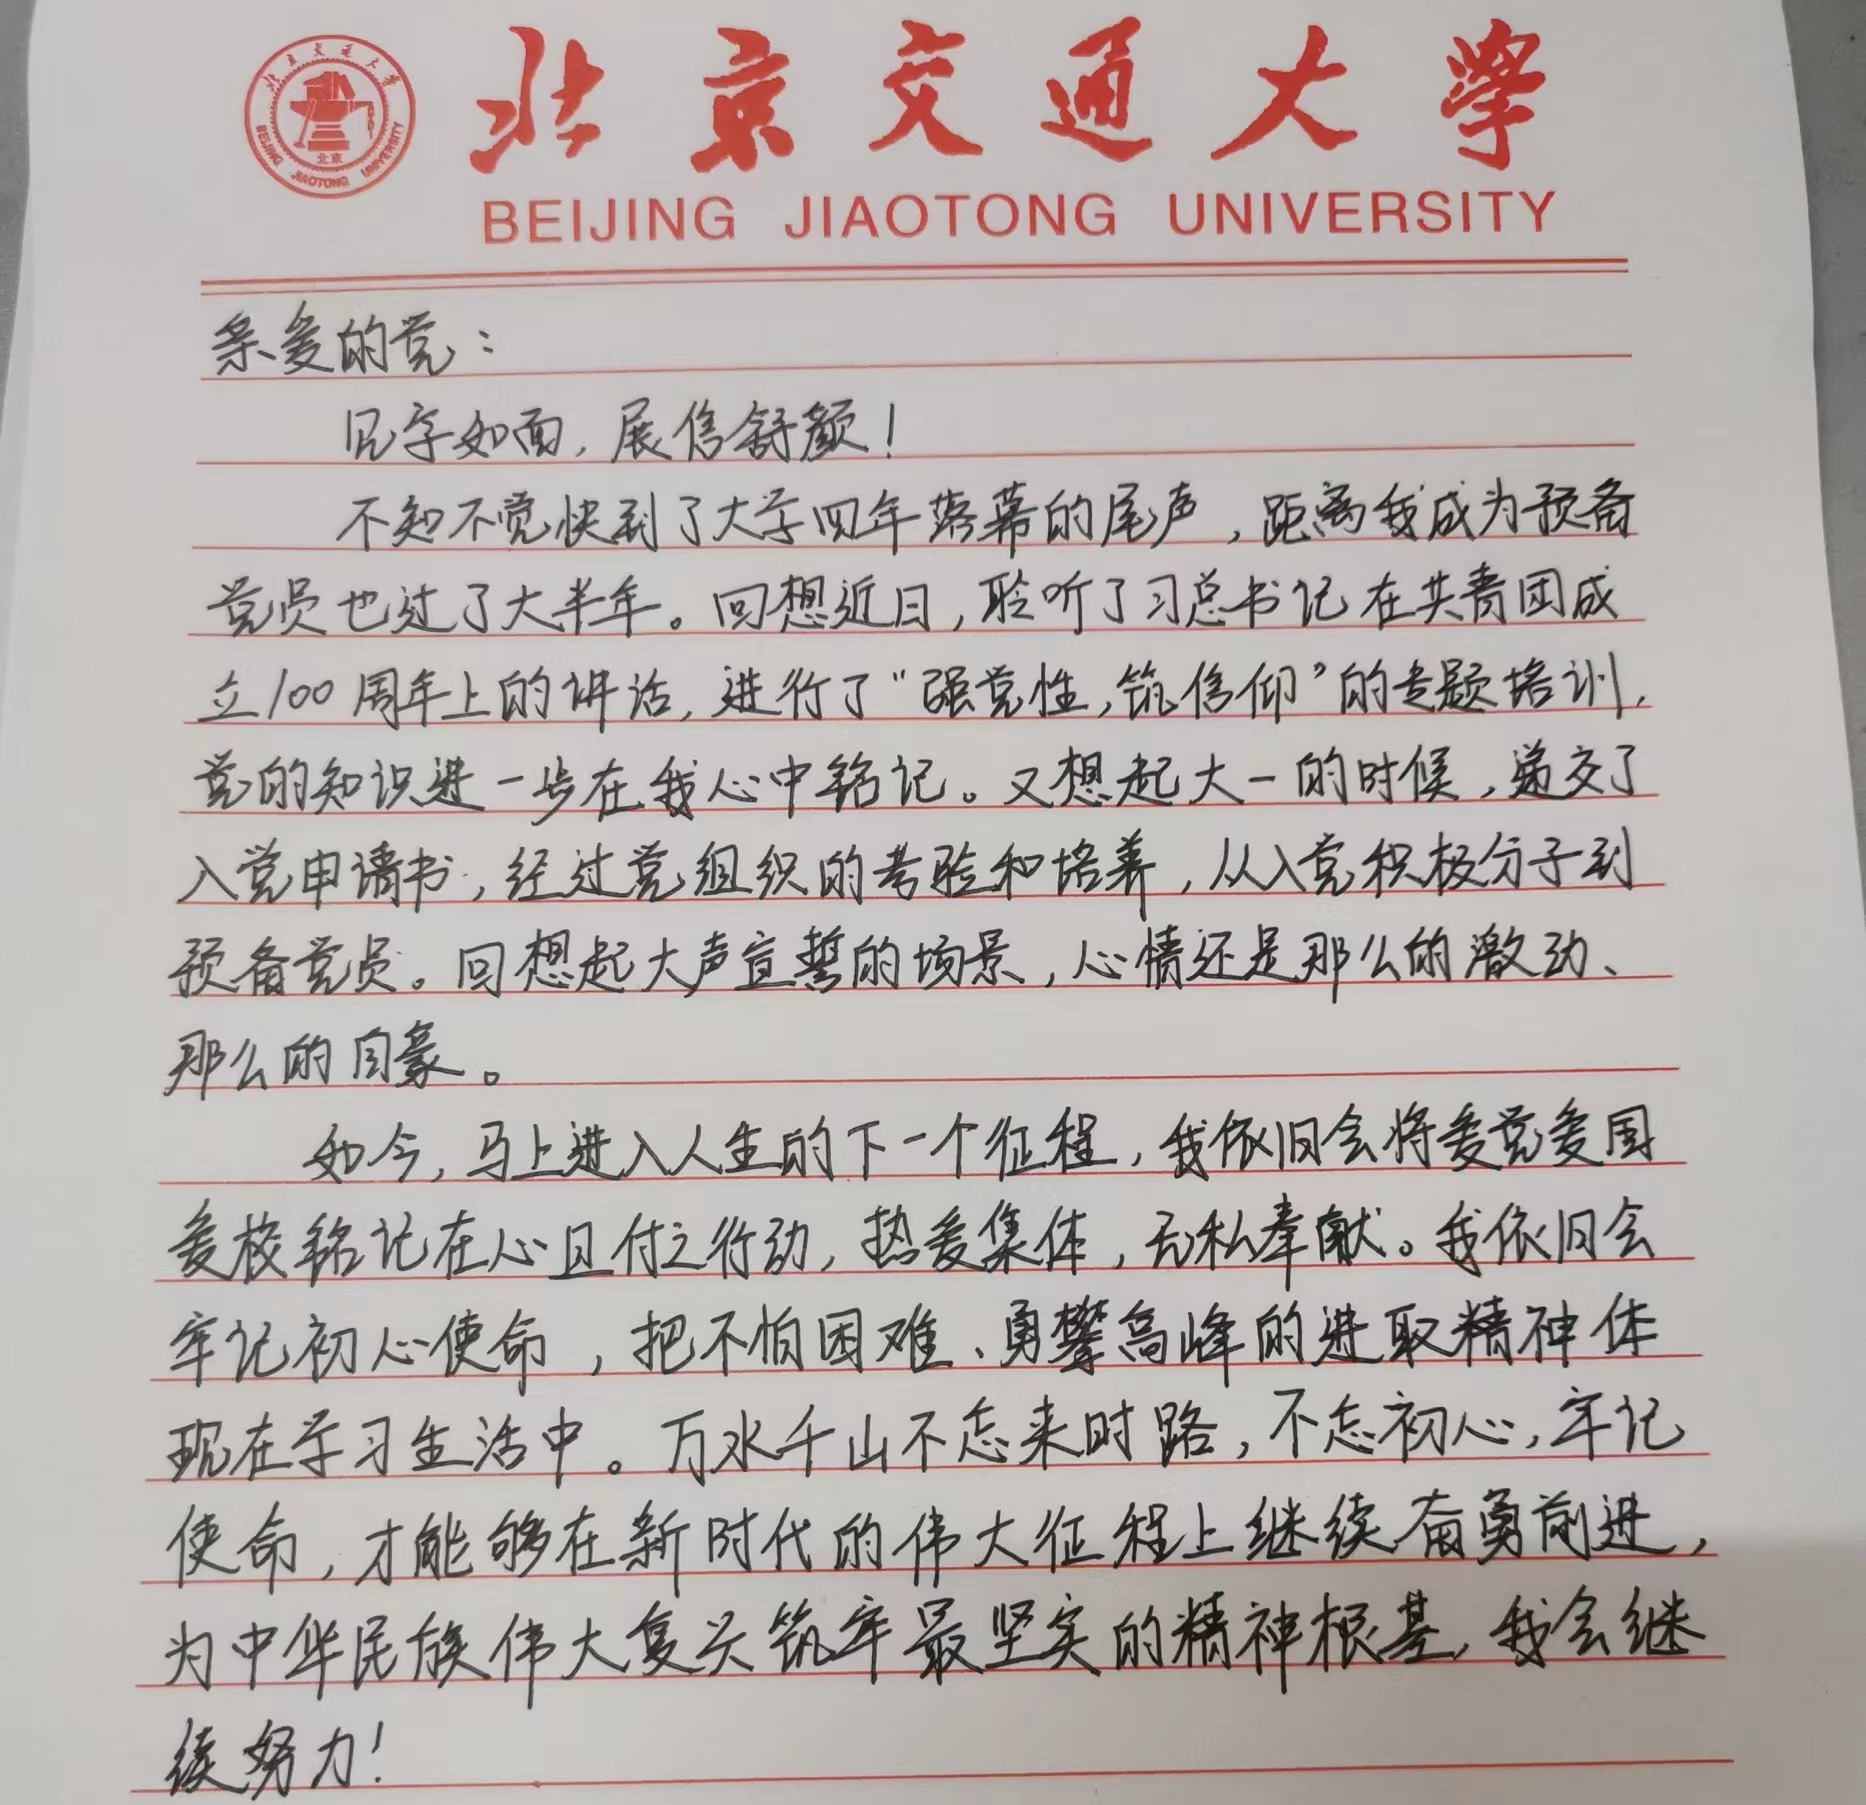 北京交通大學
BEIJING JIAOTONG UNIVERSITY
北京交通大學
北京
BEIJING JIAOTONG UNIVERSITY
亲爱的党：
见字如面，展信舒颜！
不知不觉快到了大学四年落幕的尾声，距离我成为预备
党员也过了大半年。回想近日，聆听了习总书记在共青团成
立100周年上的讲话，进行了“强党性，筑信仰”的专题培训，
党的知识进一步在我心中铭记。又想起大一的时候，递交了
入党申请书，经过党组织的考验和培养，从入党积极分子到
预备党员。回想起大声宣誓的场景，心情还是那么的激动、
那么的自豪。
如今，马上进入人生的下一个征程，我依旧会将爱党爱国
爱校铭记在心且付之行动，热爱集体，无私奉献。我依旧会
牢记初心使命，把不怕困难、勇攀高峰的进取精神体
现在学习生活中。万水千山不忘来时路，不忘初心，牢记
使命，才能够在新时代的伟大征程上继续奋勇前进，
为中华民族伟大复兴筑牢最坚实的精神根基，我会继
续努力！